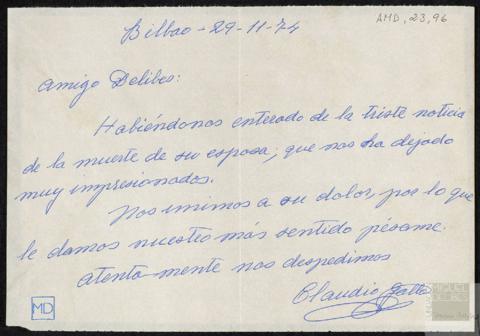 AMD, 23, 96
Bilbao - 29-11-74
Amigo Delibes:
Habiéndonos enterado de la triste noticia
de la muerte de su esposa, que nos ha dejado
muy impresionados.
Nos unimos a su dolor, por lo que
le damos nuestro más sentido pésame.
Atenta-mente nos despedimos
Claudio
MD
MIGUEL
DELIBES